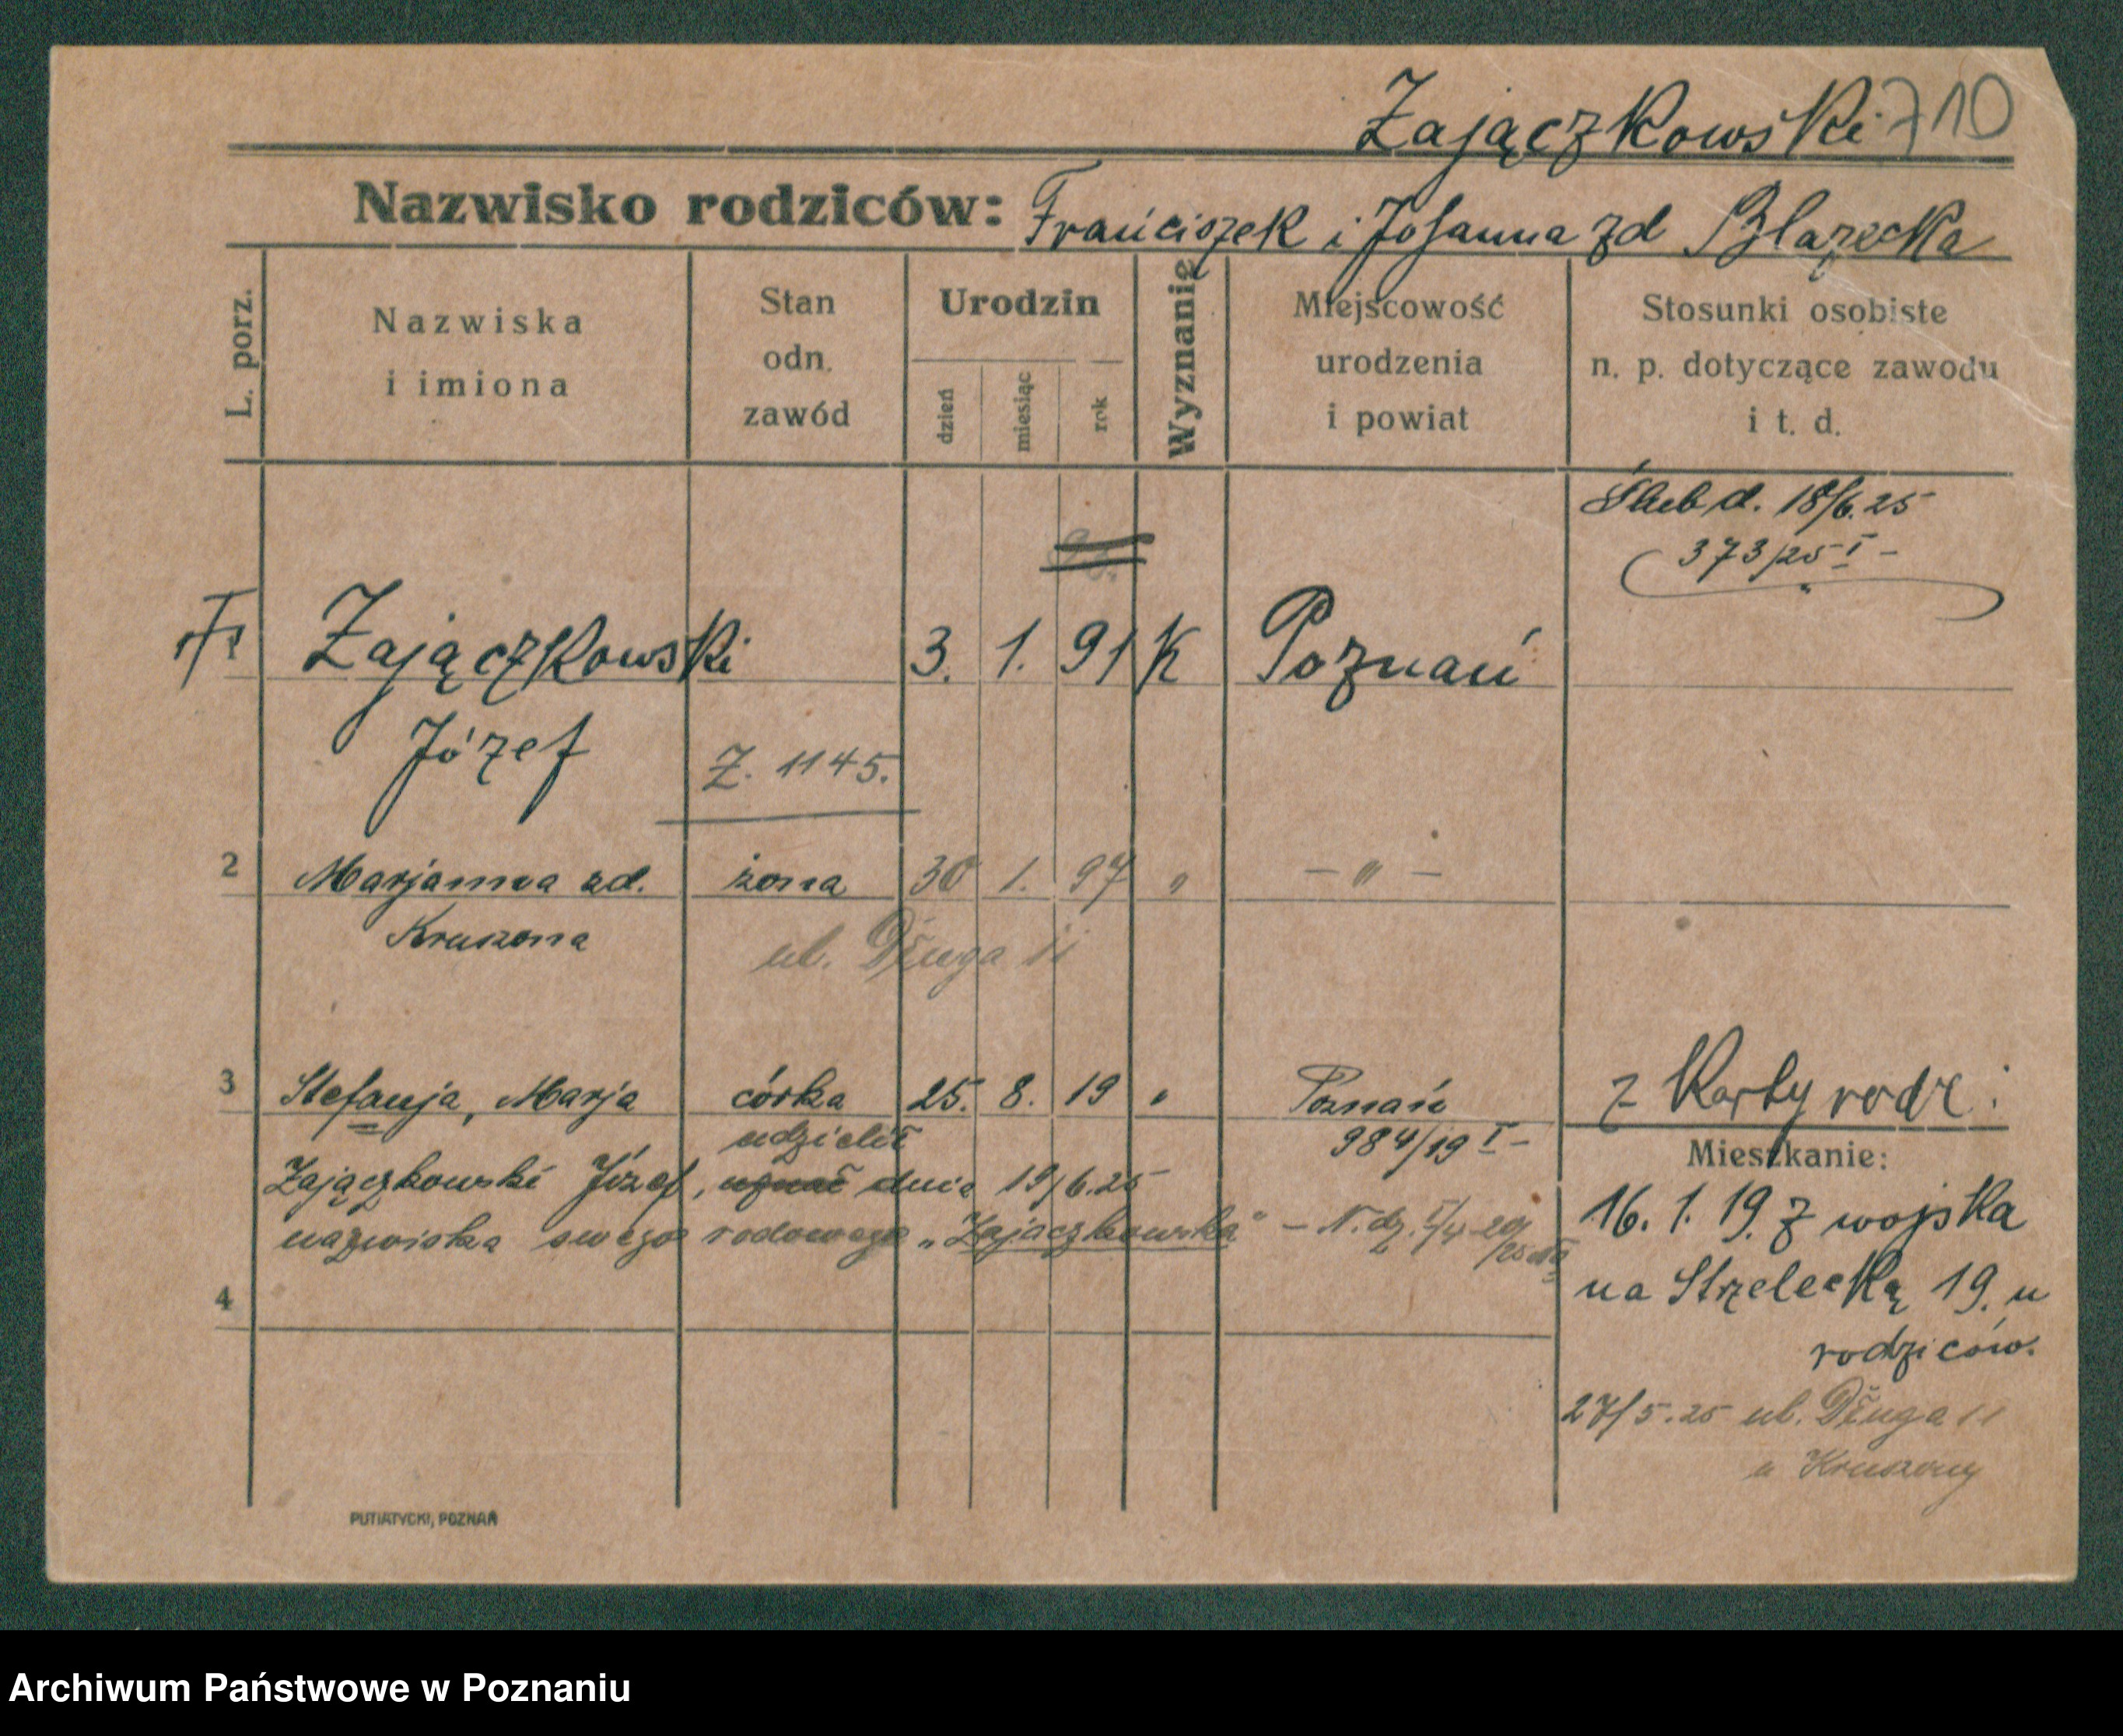 Zajączkowski 710
Nazwisko rodziców: Franciszek i Johanna zd Blazecka
L. porz.
Nazwiska
i imiona
Stan
odn.
zawód
Urodzin
dzień
miesiąc
rok
Wyznanie
Miejscowość
urodzenia
i powiat
Stosunki osobiste
n. p. dotyczące zawodu
i t. d.
Ślub d. 18/6.25
373/25 I -
Zajączkowski 3. 1. 91 K Poznań
Józef Z. 1145.
2 Marjanna zd. żona 30 1. 97 " - " -
Kruszona
ul. Długa 11
3 Stefanja, Marja córka 25. 8. 19 " Poznań
z Karty rodz.
udzielił 984/19 I -
Zajączkowski Józef, uznał dnia 19/6.25
nazwiska swego rodowego „Zajączkowska" - N. dz.
4
Mieszkanie:
16. 1. 19. z wojska
na Strzelecką 19. u
rodziców.
27/5.25 ul. Długa 11
u Kruszony
PUTIATYCKI, POZNAŃ
Archiwum Państwowe w Poznaniu